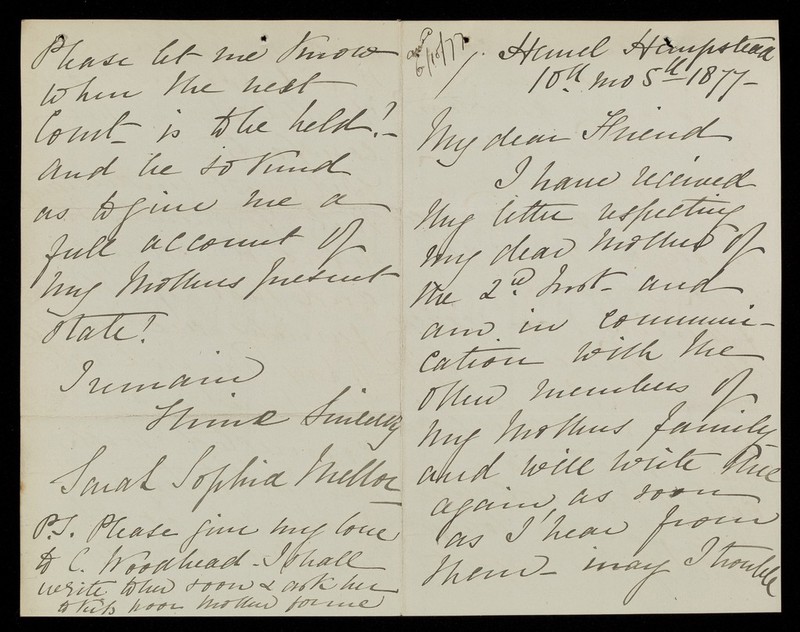 ansd
6/10/77
Hemel Hempstead
10th mo 5th 1877 -
My dear Friend
I have received
thy letter respecting
my dear Mother of
the 2nd Inst - and
am in communi-
cation with the
other members of
my Mothers family
and will write thee
again, as soon
as I hear from
them - may I trouble
Please let me know
when the next
Comt - is to be held? -
and be so kind
as to give me a
full account of
my Mothers present
state!
I remain
Thine Sincerely
Sarah Sophia Mellor
P.S. Please give my love
to C. Woodhead - I shall
write to her soon & ask her
to kiss poor mother for me